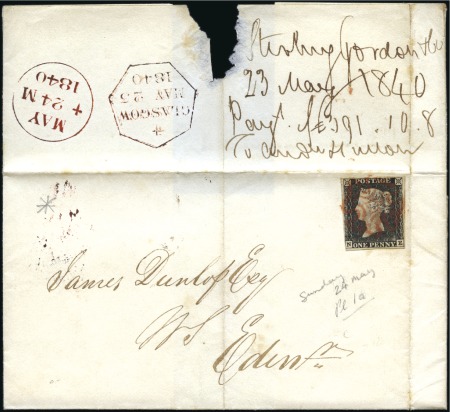 Stirling Gordon & Co
23 May 1840
Pay't £391.10.8
MAY
24 M
1840
GLASGOW
MAY 23
1840
POSTAGE
ONE PENNY
James Dunlop Esq
W.S.
Edinr
Sunday
24 may
Pl 1a